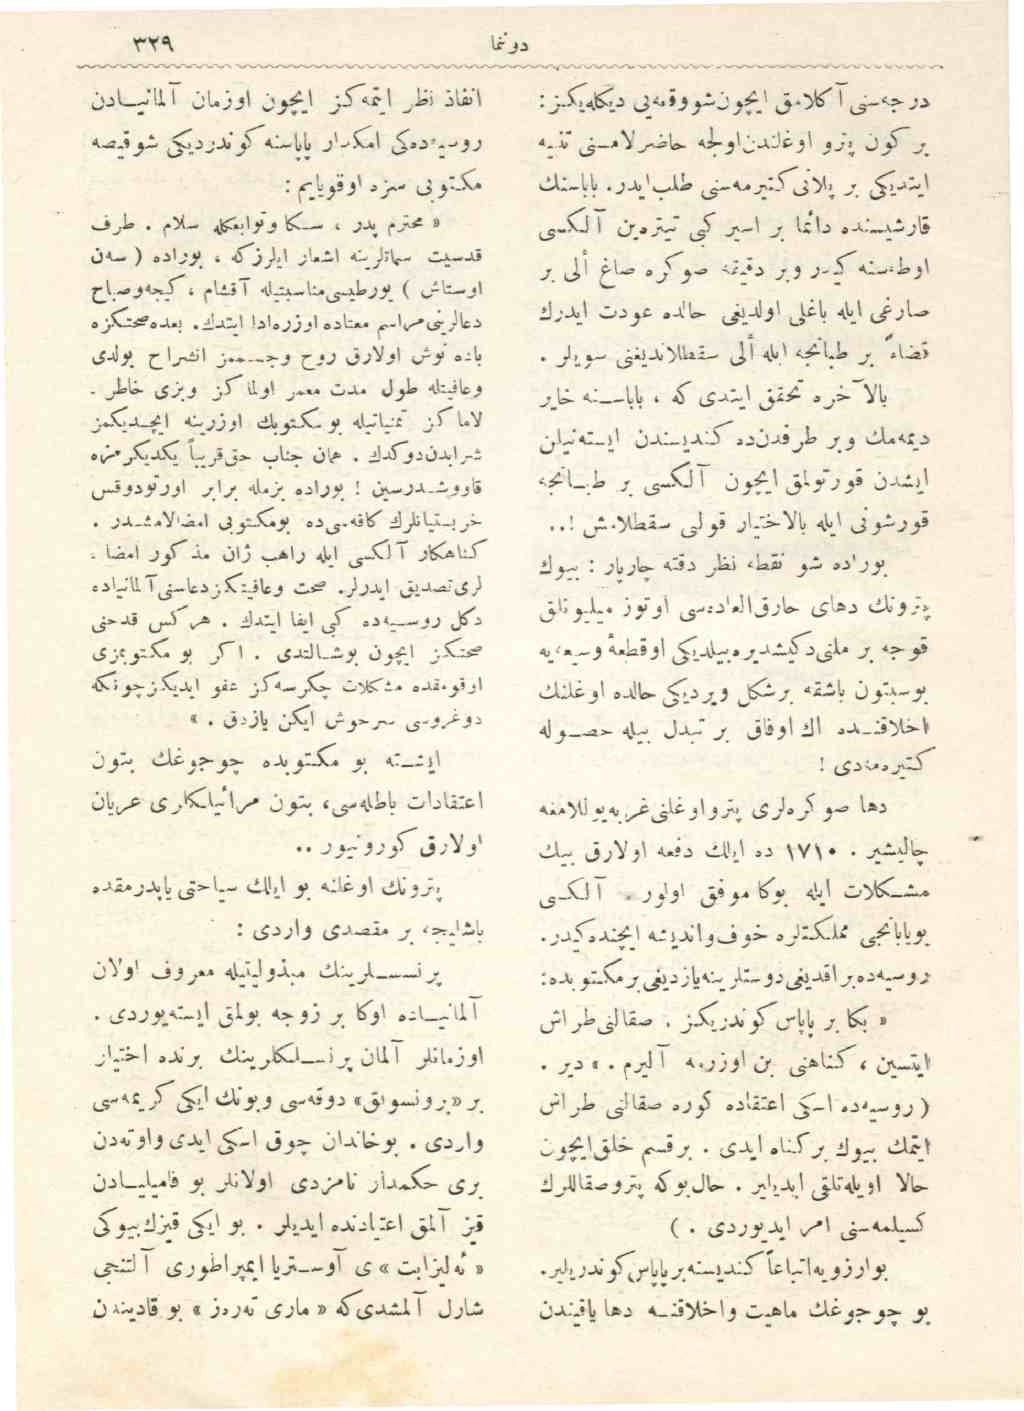 دوننما
٣٢٩
درجه‌سنی آكلامق ایچون شو وقعه‌یی دیكله‌یكز :
بر كون پترو اوغلندن اولجه حاضرلامسنی تنبیه
ایتدیكی بر پلانی كتیرمه‌سنی طلب ایدر. باباسنك
قارشیسنده دائما بر اسیر كبی تیتره‌ین آلكسی
اوطه‌سنه كیدر وبر دقیقه صوكره صاغ ألی بر
صارغی ایله باغلی اولدیغی حالده عودت ایدرك
قضاءً بر طبانجه ایله ألی سقطلاندیغنی سویلر .
بالآخره تحقق ایتدی كه ، باباسنه خایر
دیمه‌مك وبر طرفدن‌ده كندیسندن ایسته‌نیلن
ایشدن قورتولمق ایچون آلكسی بر طبانجه
قورشونی ایله بالاختیار قولنی سقطلامش !..
بوراده شو نقطه نظر دقته چارپار : بیوك
پترونك دهای خارق‌العاده‌سی اوتوز میلیونلق
قوجه بر ملتی دكیشدیره‌بیلدیكی اوقطعهٔ وسیعه‌یه
بوسبتون باشقه برشكل ویردیكی حالده اوغلنك
اخلاقنده اك اوفاق بر تبدل بیله حصوله
كتیره‌مه‌دی !
دها صوكره‌لری پترو اوغلنی غربه یوللامغه
چالیشیر . ١٧١٠ ده ایلك دفعه اولارق بیك
مشكلات ایله بوكا موفق اولور . آلكسی
بویابانجی مملكتلره خوف واندیشه ایچنده كیدر.
روسیه‌ده براقدیغی دوستلرینه یازدیغی بر مكتوبده:
« بكا بر پاپاس كوندریكز . صقالنی طراش
ایتسین ، كناهنی بن اوزریمه آلیرم . » دیر .
( روسیه‌ده اسكی اعتقاده كوره صقالنی طراش
ایتمك بیوك بر كناه ایدی . برقسم خلق ایچون
حالا اویله تلقی ایدیلیر . حال بوكه پترو صقاللرك
كسیلمه‌سنی امر ایدیوردی . )
بوآرزویه اتباعاً كندیسنه بر پاپاس كوندریلیر.
بو چوجوغك ماهیت واخلاقنه دها یاقیندن
انفاذ نظر ایتمه‌كز ایچون اوزمان آلمانیادن
روسیه‌ده‌كی امكدار پاپاسنه كوندردیكی شوقیصه
مكتوبی سزه اوقویایم :
« محترم پدر ، سكا وتوابعكله سلام . طرف
قدسیت سماتلرینه اشعار ایلرزكه ، بوراده ( سه‌ن
اوستاش ) یورطیسی‌مناسبتیله آقشام ، كیجه‌وصباح
دعالرینی‌مراسم معتاده اوزره‌ادا ایتدك. بعده‌صحتكزه
باده نوش اولارق روح وجسممز انشراح بولدی
وعافیتله طول مدت معمر اولماكز وبزی خاطر ـ
لاماكز تمنیاتیله بومكتوبك اوزرینه ایچدیكمز
شرابدن‌دوكدك . همان جناب حق‌قریباً یكدیكرمزه
قاووشدرسین ! بوراده بزمله برابر اورتودوقس
خریستیانلرك كافه‌سی‌ده بومكتوبی امضالامشدر .
كناهكار آلكسی ایله راهب ژان مذكور امضا ـ
لری تصدیق ایدرلر. صحت وعافیتكزدعاسنی آلمانیاده
دكل روسیه‌ده كبی ایفا ایتدك . هركس قدحنی
صحتكز ایچون بوشالتدی . اكر بو مكتوبمزی
اوقومقده مشكلات چكرسه‌كز عفو ایدیكز چونكه
دوغروسی سرخوش ایكن یازدق . »
ایشته بو مكتوبده چوجوغك بتون
اعتقادات باطله‌سی، بتون مرائیلكلری عریان
اولارق كورونیور ..
پترونك اوغلنه بو ایلك سیاحتی یاپدرمقده
باشلیجه بر مقصدی واردی :
پرنسسلرینك مبذولیتیله معروف اولان
آلمانیاده اوكا بر زوجه بولمق ایسته‌یوردی .
اوزمانلر آلمان پرنسلكلرینك برنده اختیار
بر «برونسویق» دوقه‌سی وبونك ایكی كریمه‌سی
واردی . بوخاندان چوق اسكی ایدی واوته‌دن
بری حكمدار نامزدی اولانلر بو فامیلیادن
قیز آلمق اعتیادنده ایدیلر . بو ایكی قیزك بیوكی
« ئه‌لیزابت » ی آوستریا ایمپراطوری آلتنجی
شارل آلمشدی كه « ماری ته‌ره‌ز » بو قادیندن